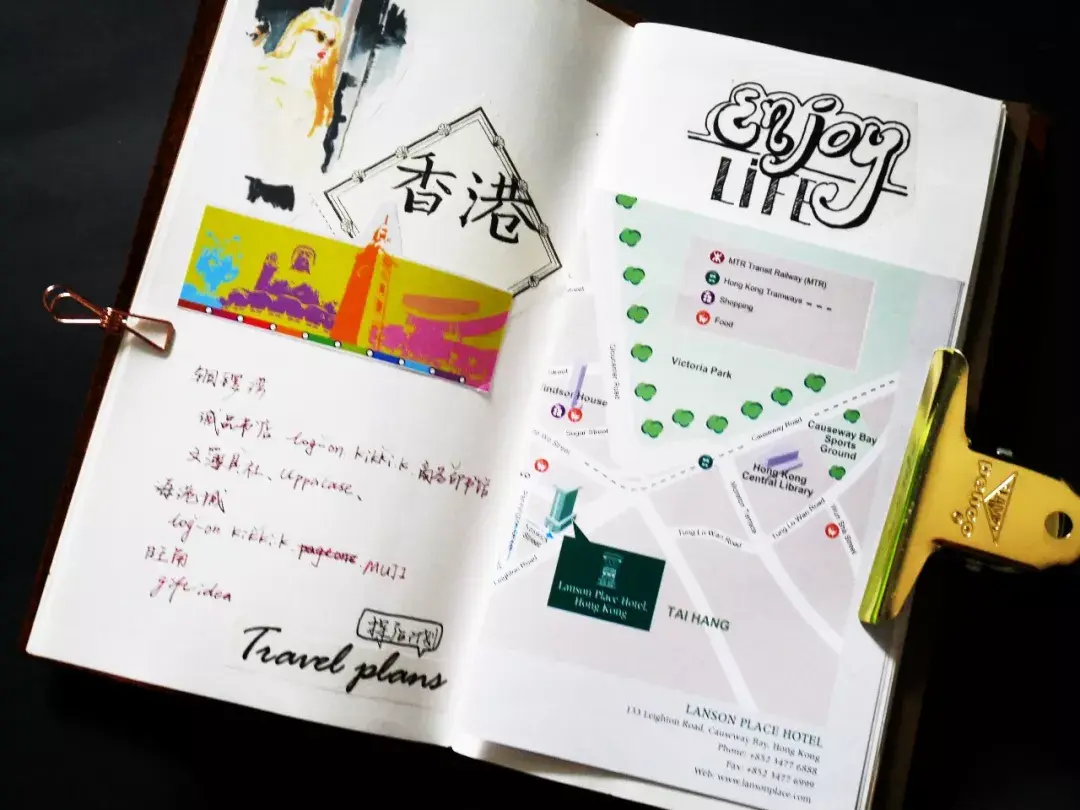 香港
铜锣湾
诚品书店 log-on kikki.k 商务印书馆
文具社、Uppercase、
海港城
log-on kikki.k. pageone. MUJI
旺角
gift idea
Travel plans
Enjoy
LiFE
MTR Transit Railway (MTR)
Hong Kong Tramways
Shopping
Food
Victoria Park
Street
indsor House
Sugar Street
Causeway Road
Causeway Bay
Sports
Ground
Hong Kong
Central Library
Moreton Terrace
Tung Lo Wan Road
Tung Lo Wan Road
Wun Sha Street
Leighton Road
Lanson Place Hotel,
Hong Kong
TAI HANG
LANSON PLACE HOTEL
133 Leighton Road, Causeway Bay, Hong Kong
Phone: +852 3477 6888
Fax: +852 3477 6999
Web: www.lansonplace.com